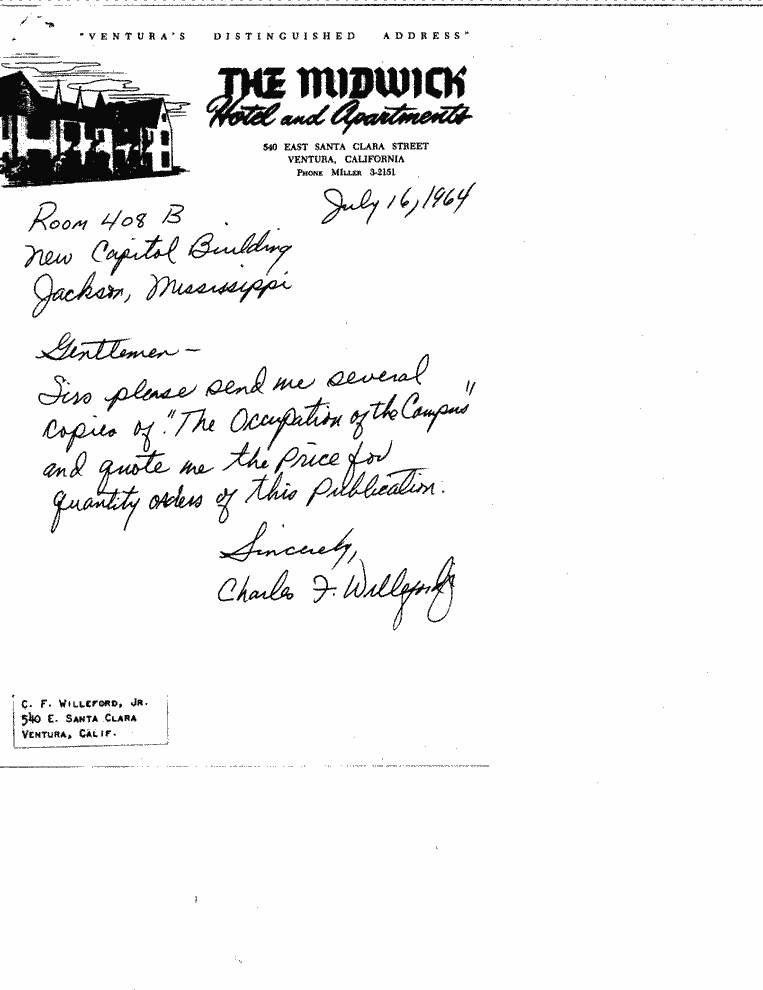 "VENTURA'S DISTINGUISHED ADDRESS"
THE MIDWICK
Hotel and Apartments
540 EAST SANTA CLARA STREET
VENTURA, CALIFORNIA
PHONE MILLER 3-2151
July 16, 1964
Room 408 B
New Capitol Building
Jackson, Mississippi
Gentlemen -
Sirs please send me several
copies of "The Occupation of the Campus"
and quote me the Price for
quantity orders of this Publication.
Sincerely,
Charles F. Willeford Jr
C. F. WILLEFORD, JR.
540 E. SANTA CLARA
VENTURA, CALIF.